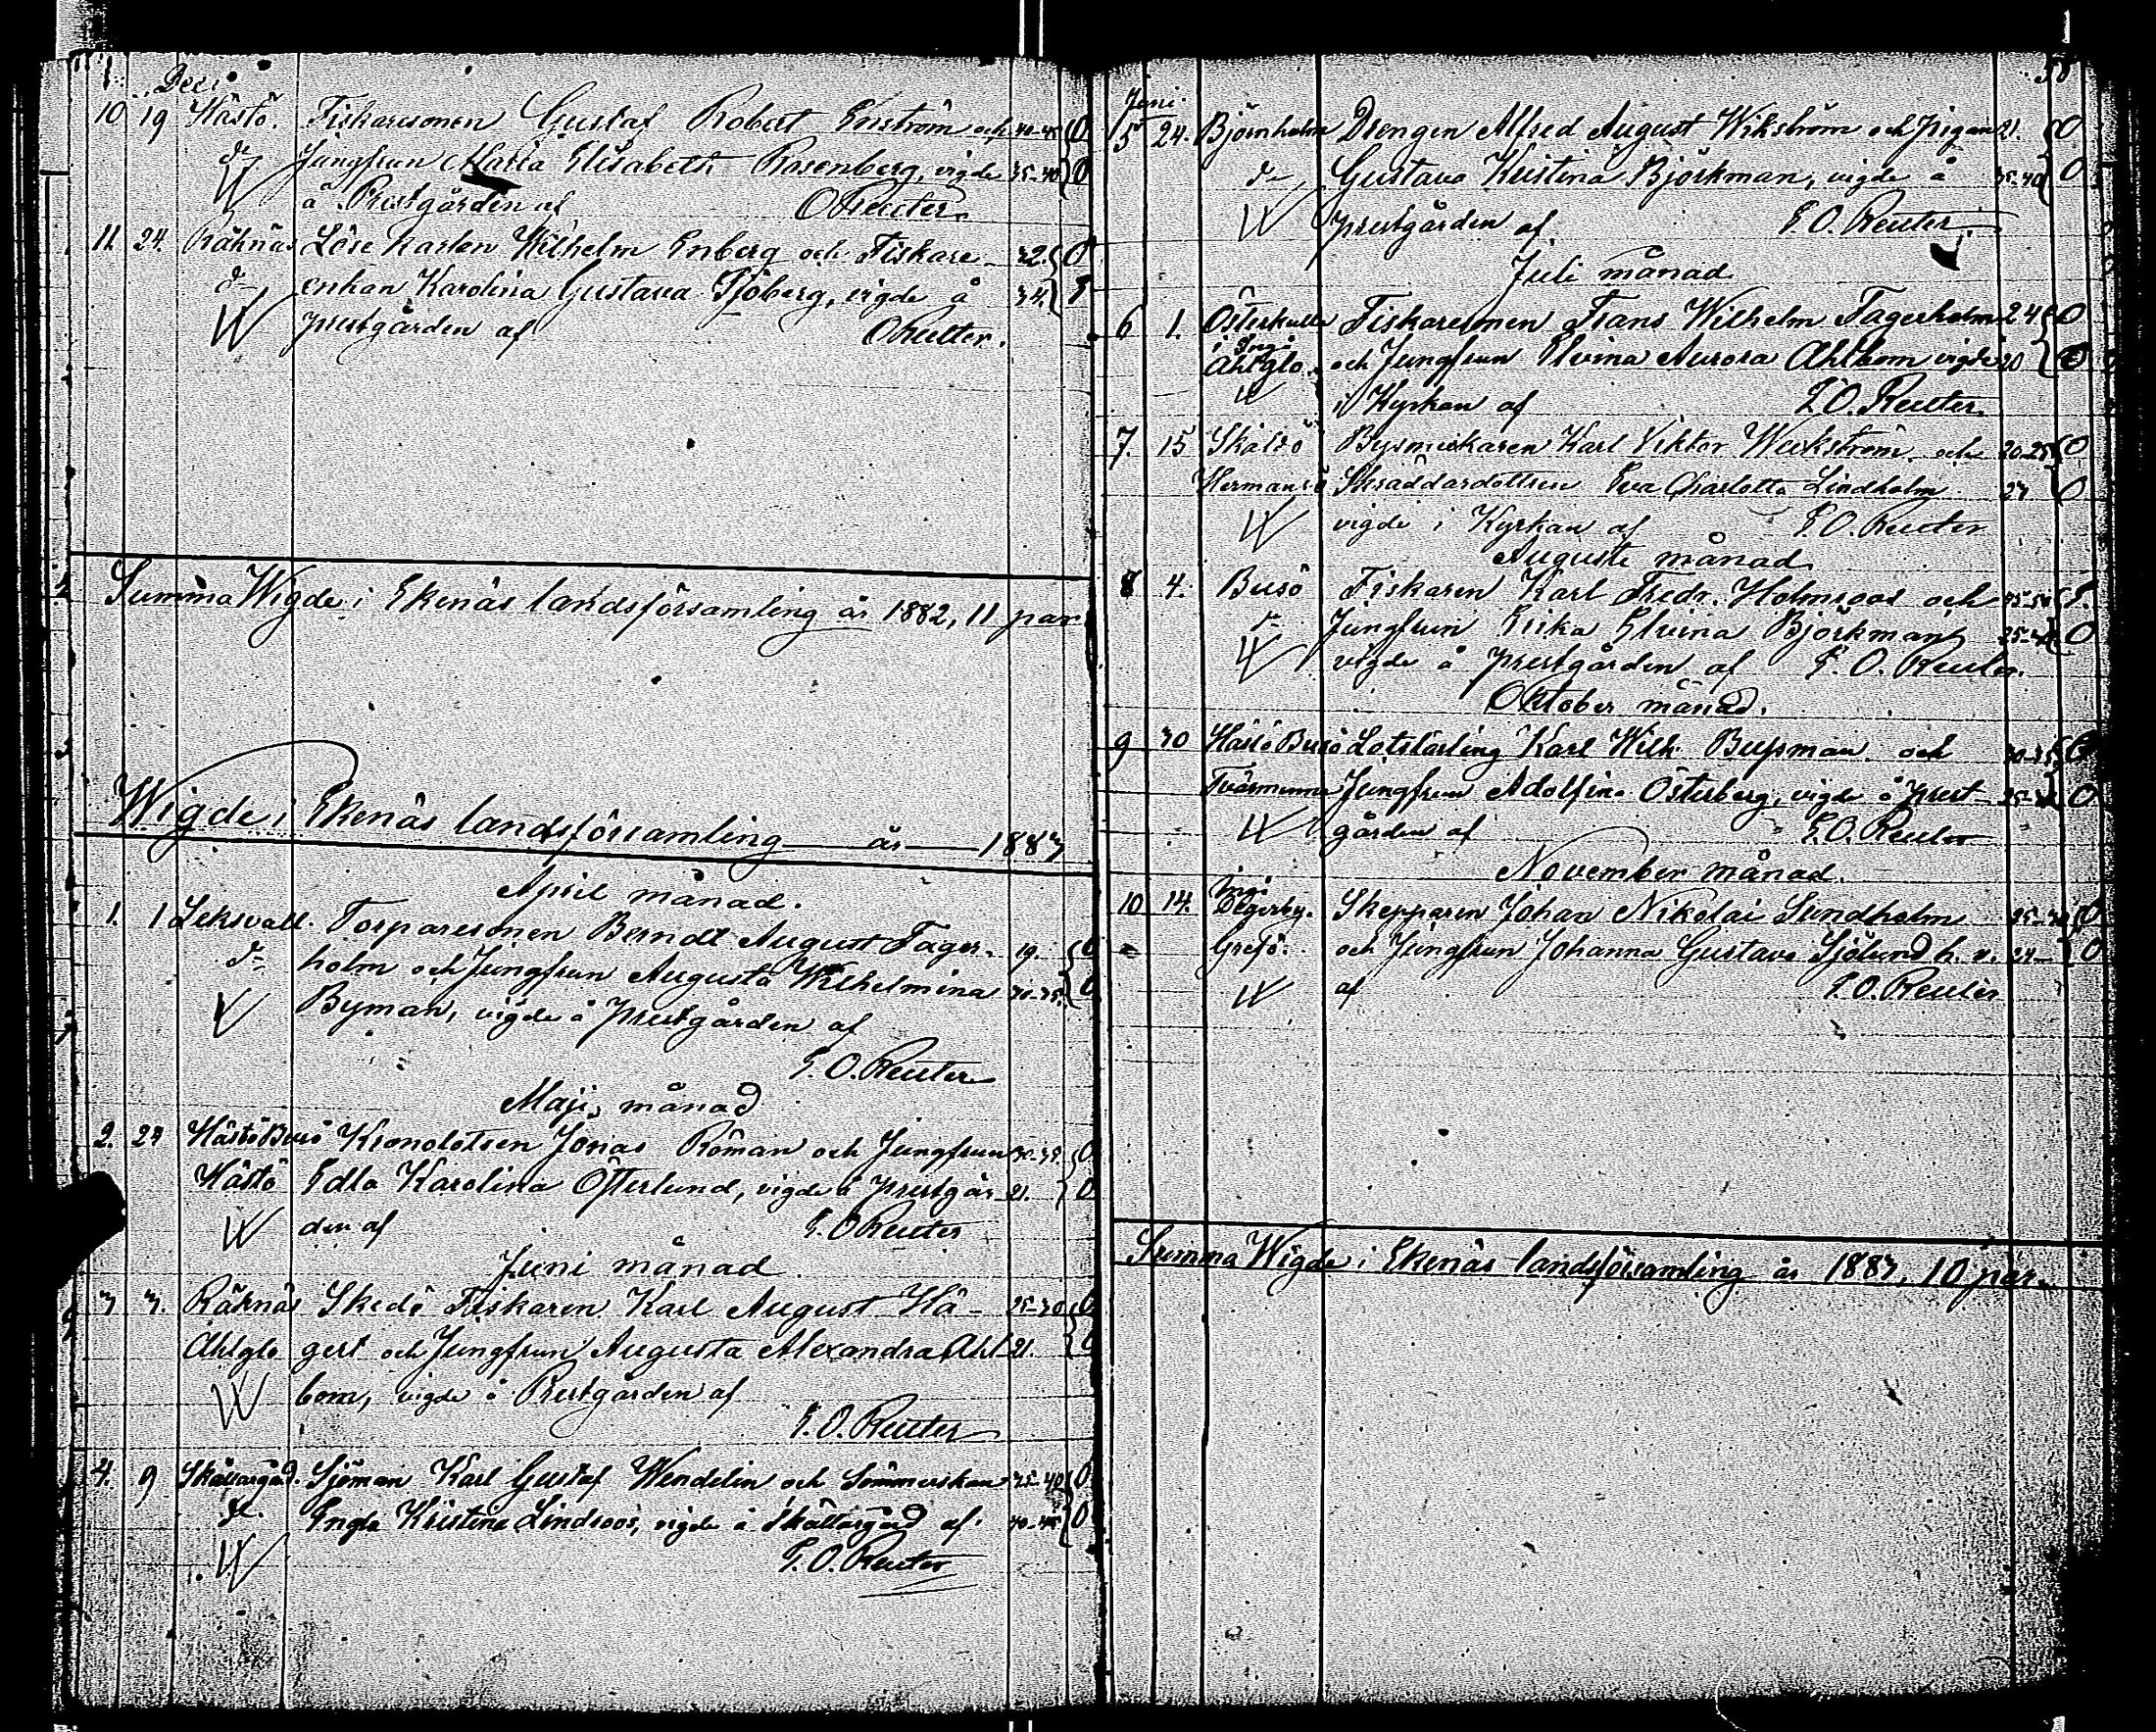 Dec:
10 19 Hästö. Fiskaresonen Gustaf Robert Enström och 40-45 0
d:o Jungfrun Maria Elisabeth Rosenberg, vigde 35-40 0
å Prestgården af O Reuter.
11. 24. Räknäs Löse karlen Wilhelm Enberg och Fiskare- 32. 0
d:o enkan Karolina Gustava Sjöberg, vigde å 34.
prestgården af O Reuter.
Summa Wigde i Ekenäs landsförsamling år 1882, 11 par
Wigde i Ekenäs landsförsamling — år — 1883
April månad.
1. 1 Leksvall. Torparesonen Berndt August Fager- 19. 0
d:o holm och Jungfrun Augusta Wilhelmina 30-35. 0
Byman, vigde å Prestgården af
E. O. Reuter
Maji månad
2. 23 Hästö Busö Kronolotsen Jonas Röman och Jungfrun 0
Hästö Edla Karolina Österlund, vigde å prestgår- 21. 0
den af E. O Reuter
Juni månad
3 3. Räknäs Skedö Fiskaren Karl August Hä- 25-30 0
Ahlglo gert och Jungfrun Augusta Alexandra Ahl- 21. 0
bom, vigde å Prestgården af
E. O. Reuter
4. 9 Skåttargård. Sjöman Karl Gustaf Wendelin och Sömmerskan 35-40 0
d:o. Enga Kristina Lindroos, vigde å Skåttargård af. 40-45 0
E. O. Reuter
Juni.
5 24. Björnholm Drengen Alfred August Wikström och pigan 21. 0
d:o Gustava Kristina Björkman, vigde å 35-40 0
prestgården af E. O. Reuter.
Juli månad
6 1. Österkulla Fiskaresonen Frans Wilhelm Fagerholm 24 0
i Ingå
Ahlglo. och Jungfrun Elvina Aurora Ahlbom vigde 20 0
i Kyrkan af E. O. Reuter.
7. 15 Skåldö Bysnickaren Karl Viktor Weckström och 20-25 0
Hermansö Skräddardottren Eva Charlotta Lindholm 23 0
vigde i Kyrkan af E. O. Reuter
Augusti månad.
8 4. Busö Fiskaren Karl Fredr. Holmroos och 45-50 E.
d:o Jungfrun Erika Elvina Björkman 0
vigde å prestgården af E. O. Reuter.
Oktober månad.
9 30 Hästö Busö Lotslärling Karl Wilh. Bussman och 30-35 0
Tvärminne Jungfrun Adolfina Österberg, vigde å prest- 0
gården af E. O. Reuter
November månad.
10 14. Ingå
Degerby. Skepparen Johan Nikolai Sundholm 25-30 0
Grefö. och Jungfrun Johanna Gustava Sjölund h. v. 0
af E. O. Reuter
Summa Wigde i Ekenäs landsförsamling år 1883, 10 par.